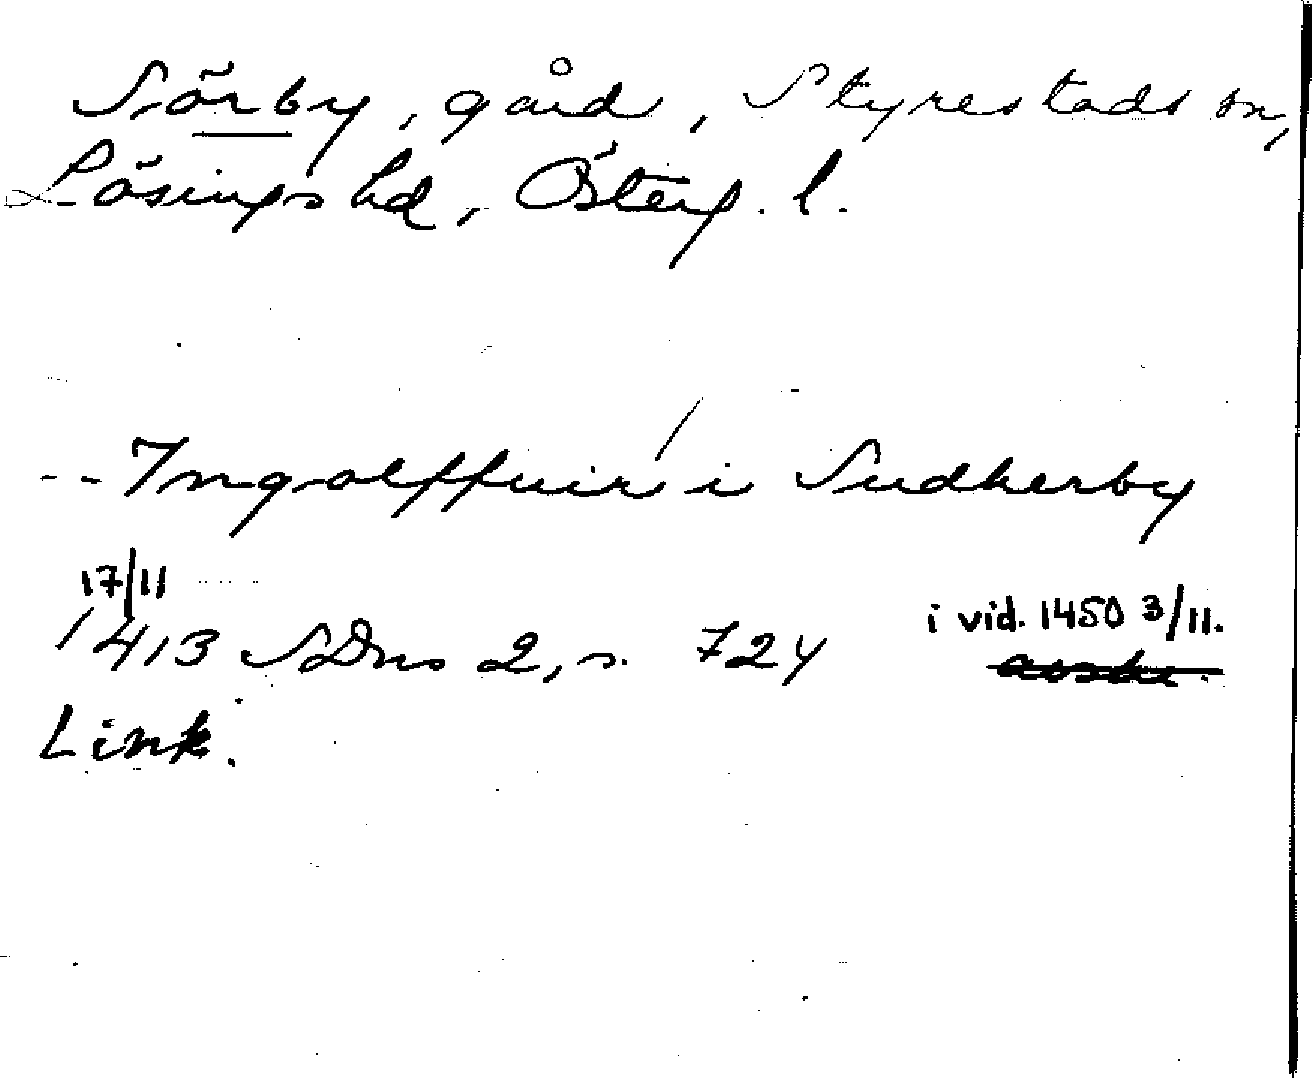 Sörby, gård, Styrestads sn,
Lösings hd, Österg. l.
-- Ingolffuir i Sudherby
17/11
1413 SDns 2, s. 724
i vid. 1450 3/11.
Link.